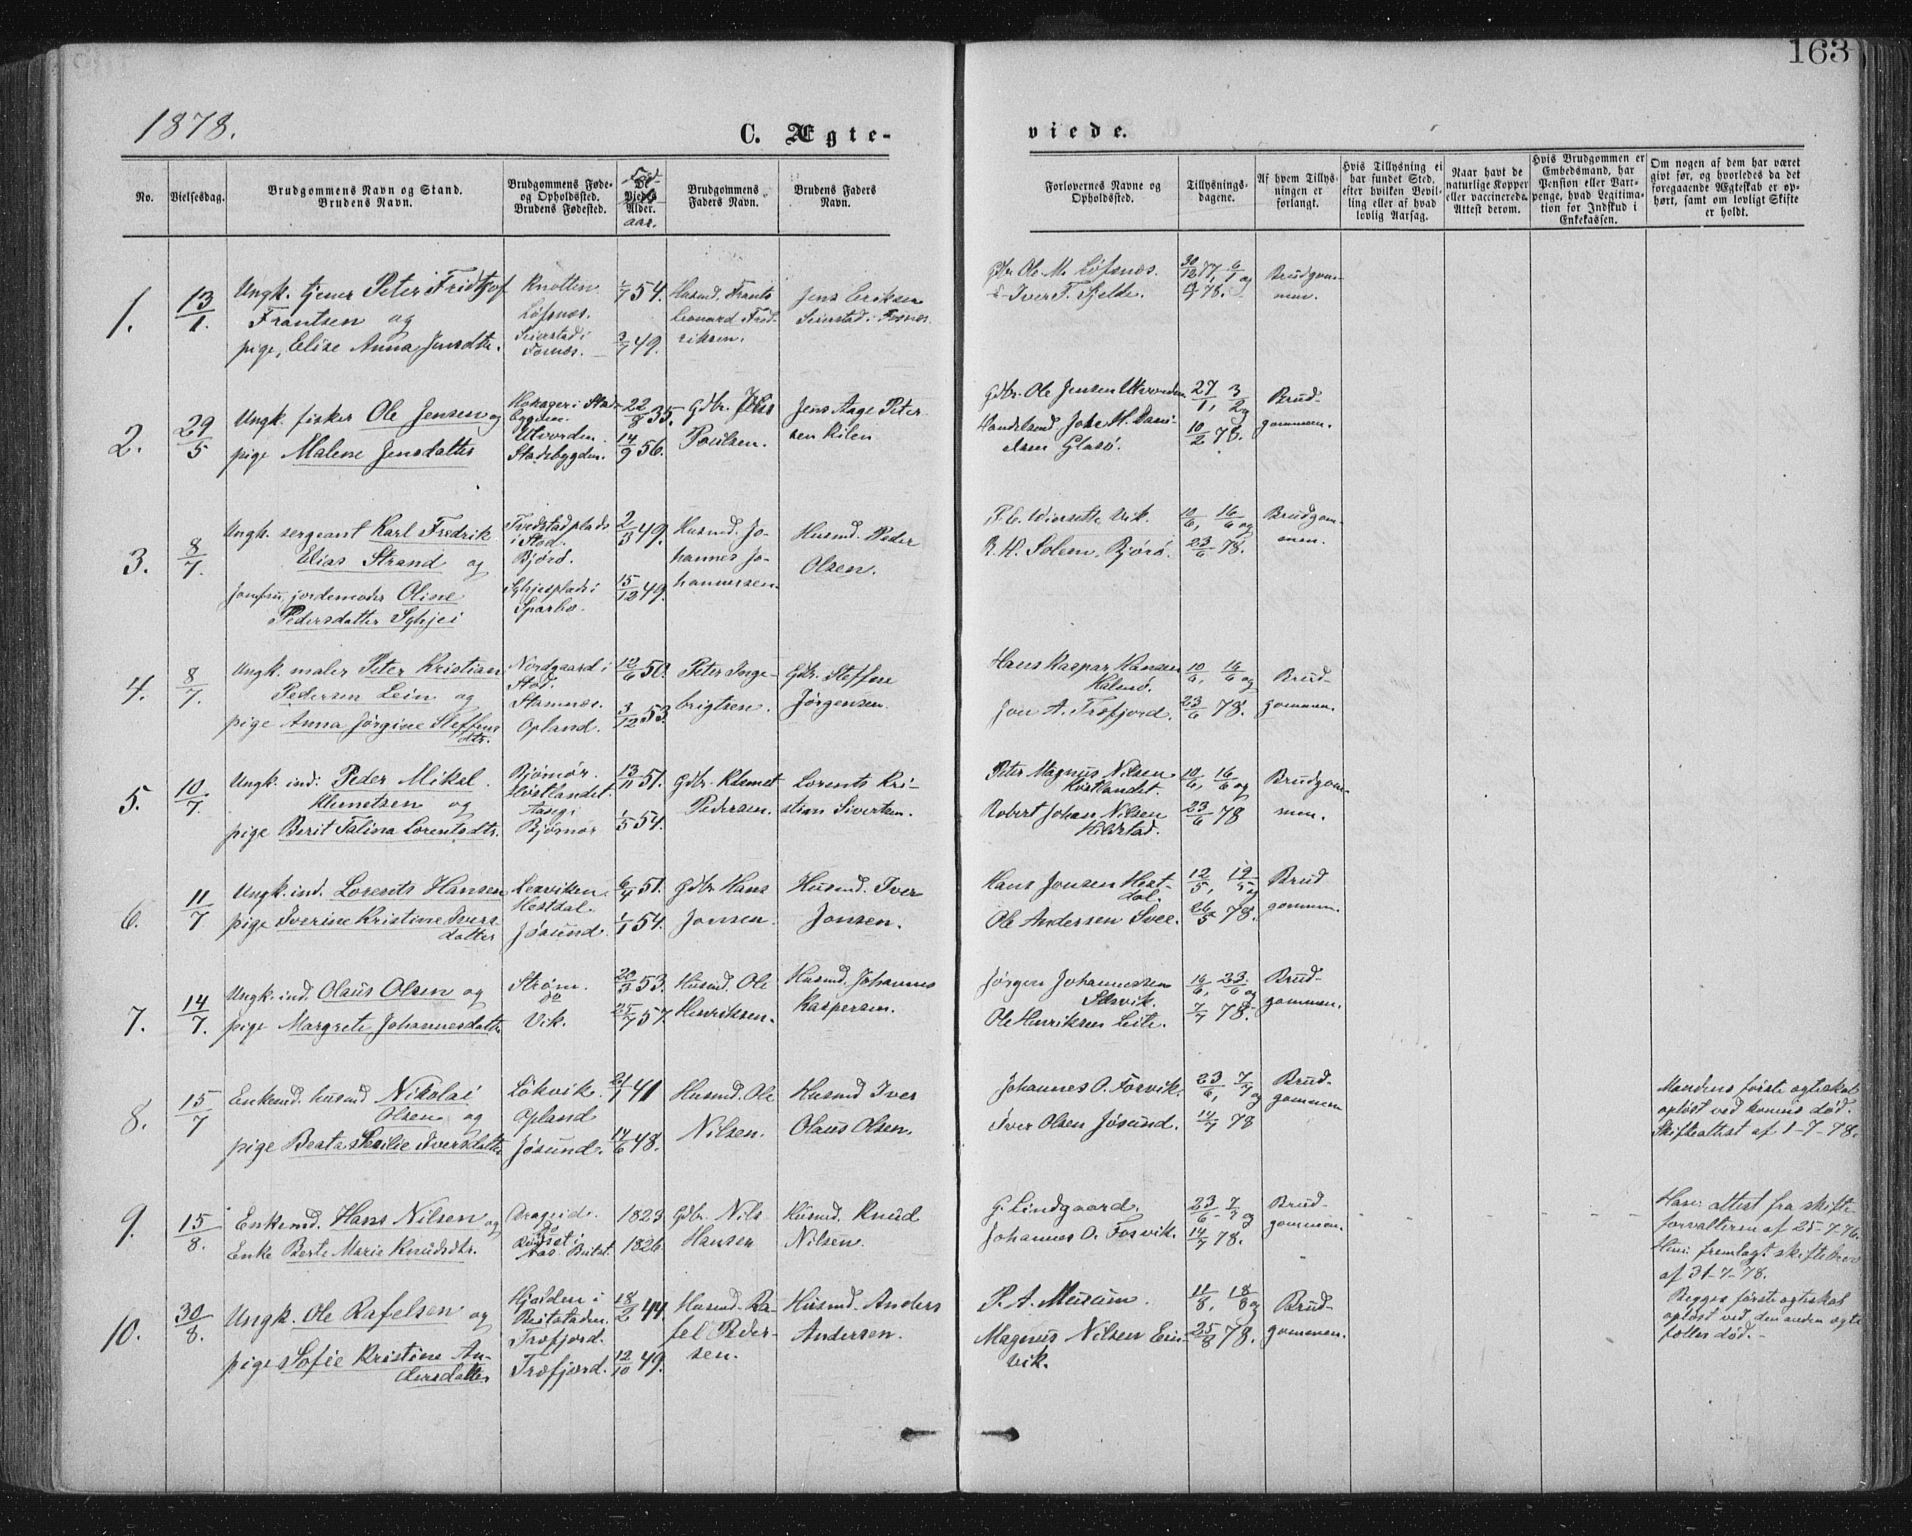 163
1878.
C. Ægte-
viede.
No.
Vielsesdag.
Brudgommens Navn og Stand.
Brudens Navn.
Brudgommens Føde-
og Opholdsted.
Brudens Fødested.
Alder.
aar.
Brudgommens
Faders Navn.
Brudens Faders
Navn.
Forlovernes Navne og
Opholdssted.
Tillysnings-
dagene.
Af hvem Tillys-
ningen er
forlangt.
Hvis Tillysning ei
har fundet Sted,
efter hvilken Bevil-
ling eller af hvad
lovlig Aarsag.
Naar havt de
naturlige Kopper
eller vaccinerede.
Attest derom.
Hvis Brudgommen er
Embedsmand, har
Pension eller Vart-
penge, hvad Legitima-
tion for Indskud i
Enkekassen.
Om nogen af dem har været
gift før, og hvorledes da det
foregaaende Ægteskab er op-
hørt, samt om lovligt Skifte
er holdt.
1.
13/1.
Ungk. tjener Peter Fridtjof
Frantsen og
pige, Elise Anna Jensdtr.
Knotten
Löfsnæs.
Seierstad i
Fosnæs.
1/7 54.
3/7 49.
Husmd. Frants
Leonard Fred-
riksen.
Jens Eriksen
Seierstad i Fosnæs.
Gbr. Ole M. Löfsnæs.
& Iver F. Sjelde.
30/12 77, 6/1 og
78.
Brudgom-
men.
2.
29/5
Ungk. fisker Ole Jensen og
pige Malene Jensdatter
i Stads-
bygden.
Utvorden.
Stadsbygden.
22/8 35.
14/9 56.
Gdbr. Jens
Poulsen.
Jens Aage Peter-
sen Rilen
Gdbr. Ole Jensen Utvorden
Handelsmd John H. Dani-
elsen Glasö.
27/1, 3/2 og
10/2 78.
Brud-
gommen.
3.
8/7.
Ungk. sergeant Karl Fredrik
Elias Strand og
Jomfru, jordemoder Oline
Pedersdatter Sghjei
Tvedstadplads
i Stod.
Bjørø.
Sghjesplads i
Sparbo.
2/3 49.
15/12 49.
Husmd. Jo-
hannes Jo-
hannessen.
Husmd. Peder
Olsen.
P. C. Wiersette Vik.
R. H. Solem, Bjørø.
10/6, 16/6 og
23/6 78.
Brudgom-
men.
4.
8/7.
Ungk. maler Peter Kristian
Pedersen Lein og
pige Anna Jørgine Steffens
dtr.
Nordgaard i
Stod.
Stamnæs.
Opland.
12/6 50.
3/12 53.
Peter Inge-
brigtsen.
Gdbr. Steffen
Jørgensen.
Hans Kaspar Hansen
Halmö.
Jon A. Træfjord.
10/6, 16/6 og
23/6 78.
Brud-
gommen.
5.
10/7.
Ungk. ind: Peder Mikal
Klemetsen og
pige Berit Talina Lorentsdtr.
Bjørnør.
Hostlandet.
Aasg i
Bjørnør
13/11 51.
1/5 54.
Gdbr. Klemet
Pedersen.
Lorents Kri-
stian Sivertsen.
Peter Magnus Nilsen
Kostlandet.
Robert Johan Nilsen
Hildstad.
10/6, 16/6 og
23/6 78
Brudgom-
men.
6.
11/7
Ungk. ind. Lorents Hansen
pige Iverine Kristine Ivers
datter
Lexviken
Hestdal.
Jøsund.
6/9 51.
1/1 54.
Gdbr Hans
Jonsen.
Husmd. Iver
Jonsen.
Hans Jonsen Hest-
dal.
Ole Andersen Svee.
12/5, 19/5 og
26/5 78.
Brud
gommen.
7.
14/7.
Ungk. ind. Olaus Olsen og
pige Margrete Johannesdatter
Strøm.
do
Vik.
20/3 53.
25/7 57.
Husmd. Ole
Henriksen.
Husmd. Johannes
Kaspersen.
Jørgen Johannessen
Ole Henriksen Leite.
16/6, 23/6 og
7/7 78.
Brud-
gommen.
8.
15/7
Enkemd. husmd Nikolai
Olsen og
pige Berta Secilie Iversdatter
Lökvik.
Opland
Jøsund.
21/1 41
14/6 48.
Husmd. Ole
Nilsen.
Husmd Iver
Olaus Olsen.
Johannes O. Forvik.
Iver Olsen Jøsund.
23/6, 7/7 og
14/7 78
Brud-
gommen
Mandens første egteskab
opløst ved konens død.
Skifteattest af 1-7-78.
9.
15/8.
Enkemd. Hans Nilsen og
Enke Berte Marie Knudsdtr.
Drageide.
1823.
1826.
Gdbr. Nils
Hansen
Husmd. Knud
Nilsen.
G. Lindgaard.
Johannes O. Forvik.
23/6 - 7/7 og
14/7 78.
Brud-
gommen.
Han: attest fra skifte
forvalteren af 25-7-76.
Hun: fremlagt skiftebrev
af 31-7-78.
Begges første egteskab
opløst ved den anden ægte
fælles død.
10.
30/8.
Ungk. Ole Rafelsen og
pige Sofie Kristine An-
dersdatter
Hjelden i
Beitstaden.
Træfjord.
Træfjord.
18/2 44.
12/10 49.
Husmd. Ra-
fel Peder-
sen.
Husmd. Anders
Andersen.
P. A. Meium.
Magnus Nilsen Ein-
vik.
11/8, 18/8 og
25/8 78.
Brud-
gommen.